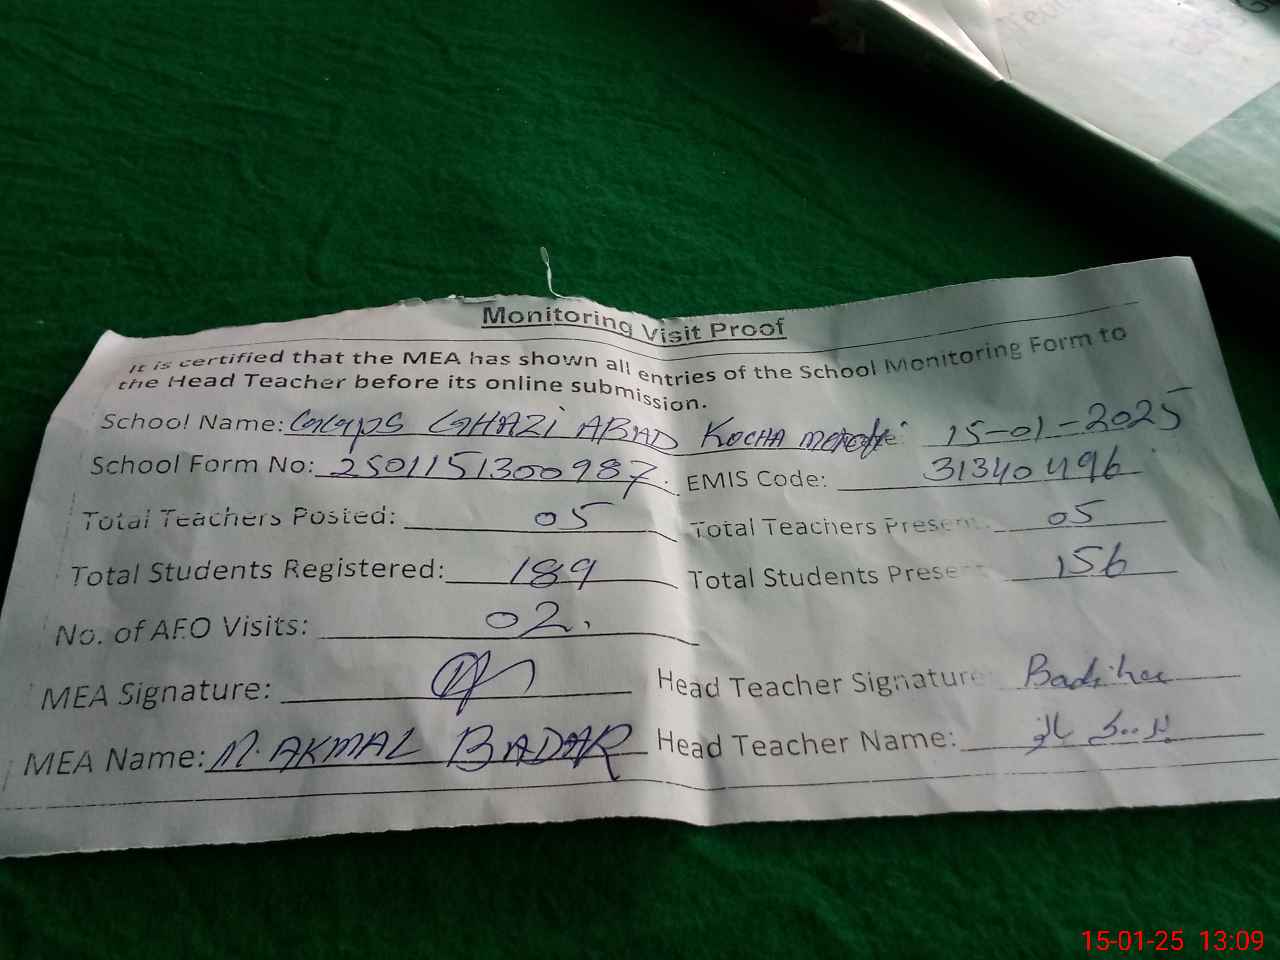 Monitoring Visit Proof
It is certified that the MEA has shown all entries of the School Monitoring Form to
the Head Teacher before its online submission.
School Name: GGPS GHAZI ABAD KOCHA 15-01-2025
School Form No: 2501151300987. EMIS Code: 31340496
Total Teachers Posted: 05 Total Teachers Present: 05
Total Students Registered: 189 Total Students Present: 156
No. of AEO Visits: 02.
MEA Signature: Head Teacher Signature:
MEA Name: M. AKMAL BADAR Head Teacher Name:
15-01-25 13:09